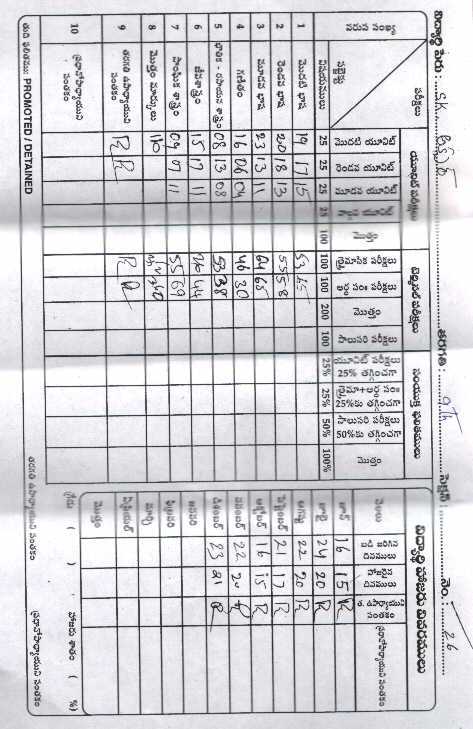 విద్యార్థి పేరు : SK. తరగతి : 9th సెక్షన్ : నెం. : 26
పరీక్షలు యూనిట్ పరీక్షలు టెర్మినల్ పరీక్షలు సంయుక్త ఫలితములు
వరుస సంఖ్య సబ్జెక్టు విషయములు మొదటి యూనిట్ రెండవ యూనిట్ మూడవ యూనిట్ నాల్గవ యూనిట్ మొత్తం త్రైమాసిక పరీక్షలు అర్ధ సం॥ పరీక్షలు మొత్తం సాలుసరి పరీక్షలు యూనిట్ పరీక్షలు 25% తగ్గించగా త్రైమా+అర్ధ సం॥ 25%కు తగ్గించగా సాలుసరి పరీక్షలు 50%కు తగ్గించగా మొత్తం
25 25 25 25 100 100 100 200 100 25% 25% 50% 100%
1 మొదటి భాష 19 17 15 53 65
2 రెండవ భాష 20 18 13 55 58
3 మూడవ భాష 23 13 11 64 65
4 గణితం 16 06 04 46 30
5 భౌతిక - రసాయన శాస్త్రం 08 13 08 53 38
6 జీవశాస్త్రం 15 17 11 20 44
7 సాంఘిక శాస్త్రం 09 07 11 55 69
8 మొత్తం మార్కులు 110
9 తరగతి ఉపాధ్యాయుని సంతకం
10 ప్రధానోపాధ్యాయుని సంతకం
తుది ఫలితము: PROMOTED / DETAINED
తరగతి ఉపాధ్యాయుని సంతకం
ప్రధానోపాధ్యాయుని సంతకం
విద్యార్థి హాజరు వివరములు
నెలలు బడి జరిగిన దినములు హాజరైన దినములు త. ఉపాధ్యాయుని సంతకం ప్రధానోపాధ్యాయుని సంతకం
జూన్ 16 15
జూలై 24 20
ఆగస్టు 22 20
సెప్టెంబర్ 21 17
అక్టోబర్ 16 15
నవంబర్ 22 20
డిశెంబర్ 23 21
జనవరి
ఫిబ్రవరి
మార్చి
ఏప్రియల్
మొత్తం
గ్రేడు ( ) హాజరు శాతం ( %)